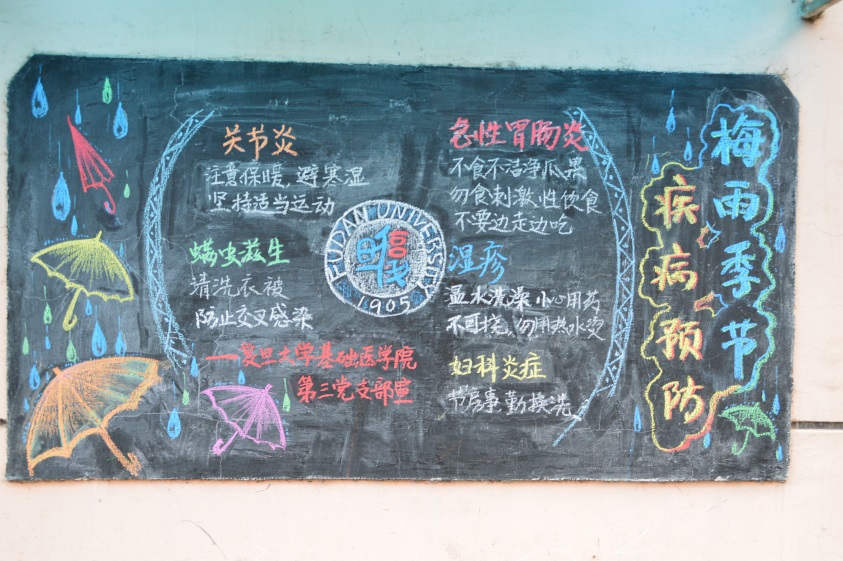 梅雨季节
疾病预防
关节炎
注意保暖,避寒湿
坚持适当运动
螨虫滋生
清洗衣被
防止交叉感染
——复旦大学基础医学院
第三党支部宣
FUDAN UNIVERSITY
1905
急性胃肠炎
不食不洁净瓜果
勿食刺激性饮食
不要边走边吃
湿疹
温水洗澡 小心用药
不可挠,勿用热水烫
妇科炎症
节房事 勤换洗